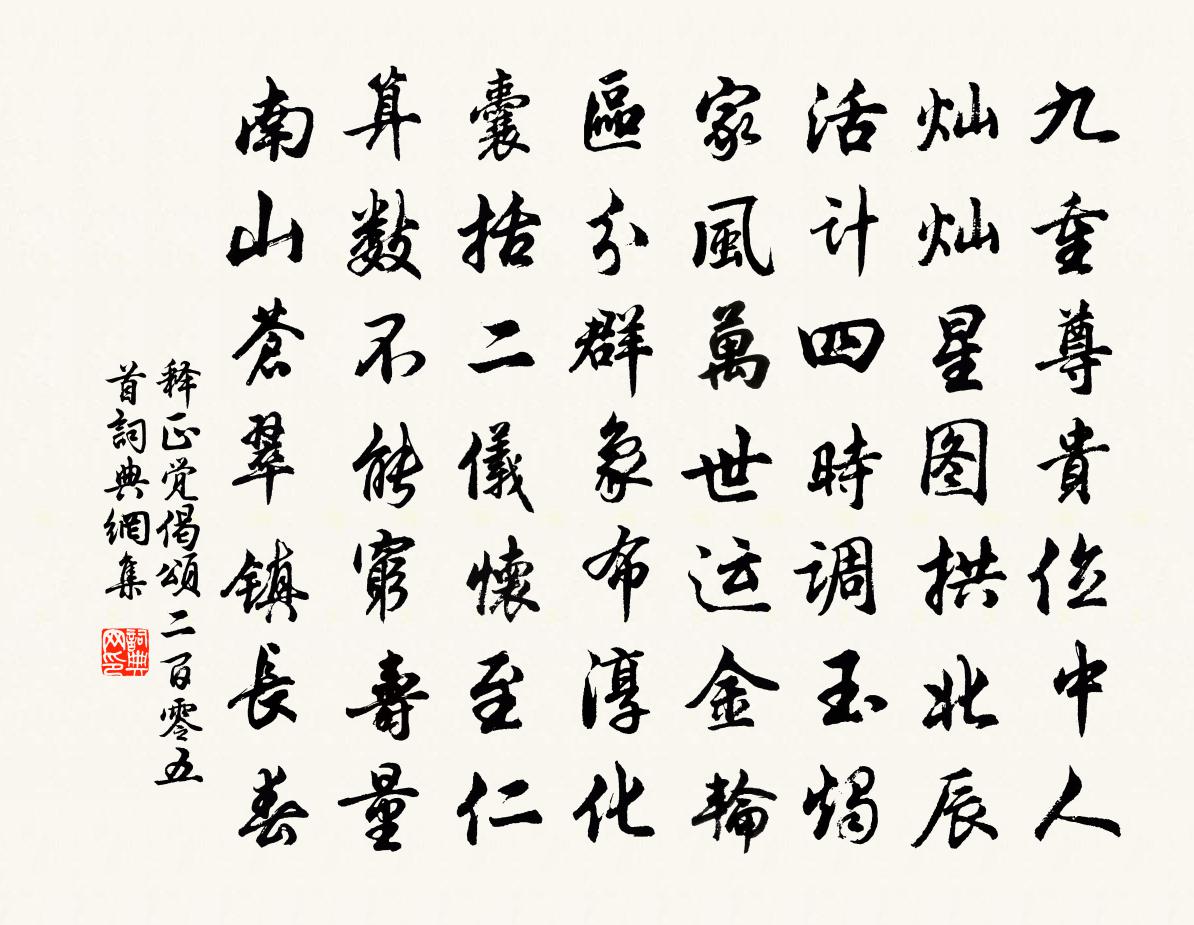 九重尊貴位中人
灿灿星图拱北辰
活计四時調玉燭
家風萬世运金輪
區分群象布淳化
囊括二儀懷至仁
算數不能窮壽量
南山蒼翠镇長春
释正觉偈頌二百零五
首詞典網集
詞典网印